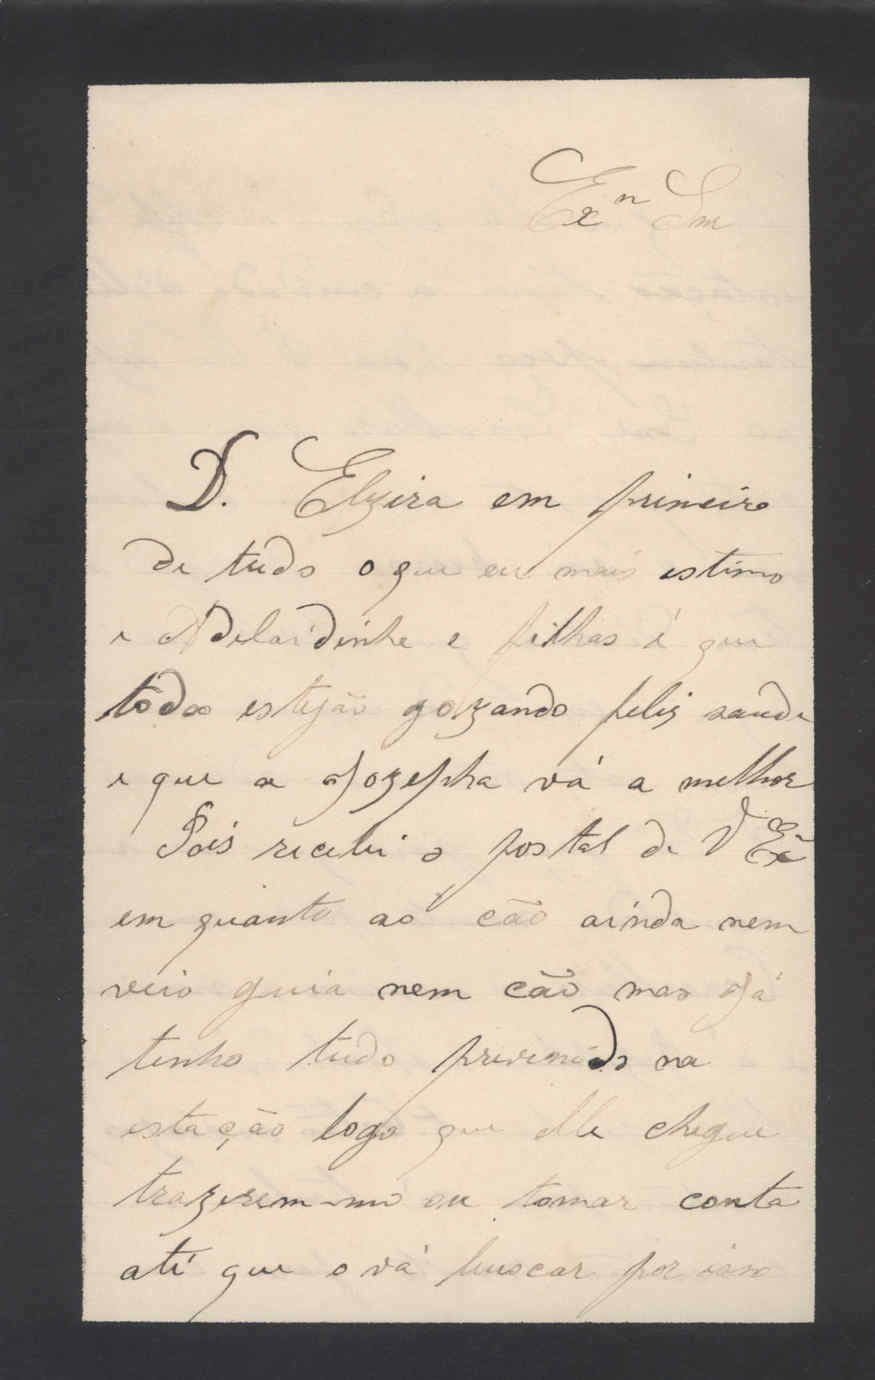 Exn Snr
D. Elzira em primeiro
de tudo o que eu mais estimo
e Adelaidinha e filhas é que
todos estejão gozando feliz saude
e que a Jozepha vá a melhor
Pois recebi o postal de V Exa
em quanto ao cão ainda nem
veio guia nem cão mas já
tenho tudo prevenido na
estação logo que elle chegue
trazerem-mo ou tomar conta
até que o vá buscar por isso